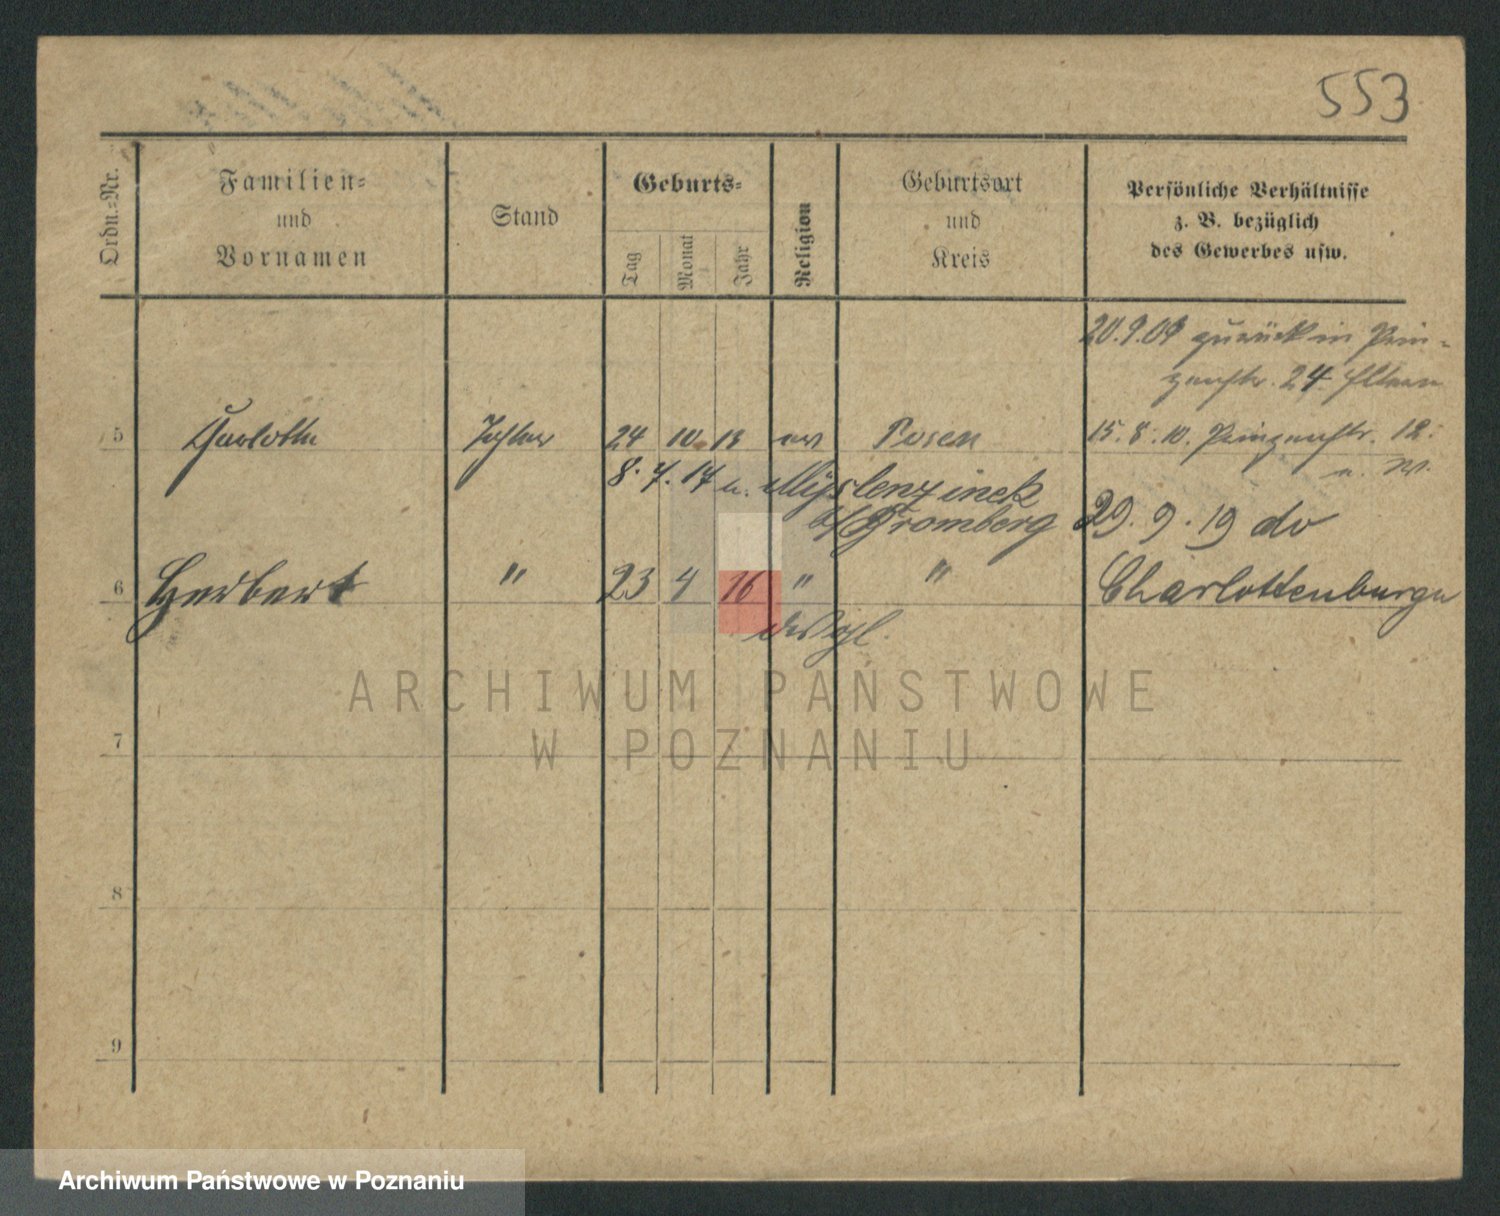 553
Ordn.-Nr.
Familien-
und
Vornamen
Stand
Geburts-
Tag
Monat
Jahr
Religion
Geburtsort
und
Kreis
Persönliche Verhältnisse
z. B. bezüglich
des Gewerbes usw.
20.9.09 zurück in Prin-
zenstr. 24 Eltern
5 Charlotte Tochter 24 10 13 ev Posen 15.8.10. Prinzenstr. 12.
u. W.
8.7.17 u. Myslenzinek
b/Bromberg 29.9.19 dv
6 Herbert " 23 4 16 " " Charlottenburg
7
8
9
ARCHIWUM PAŃSTWOWE
W POZNANIU
Archiwum Państwowe w Poznaniu